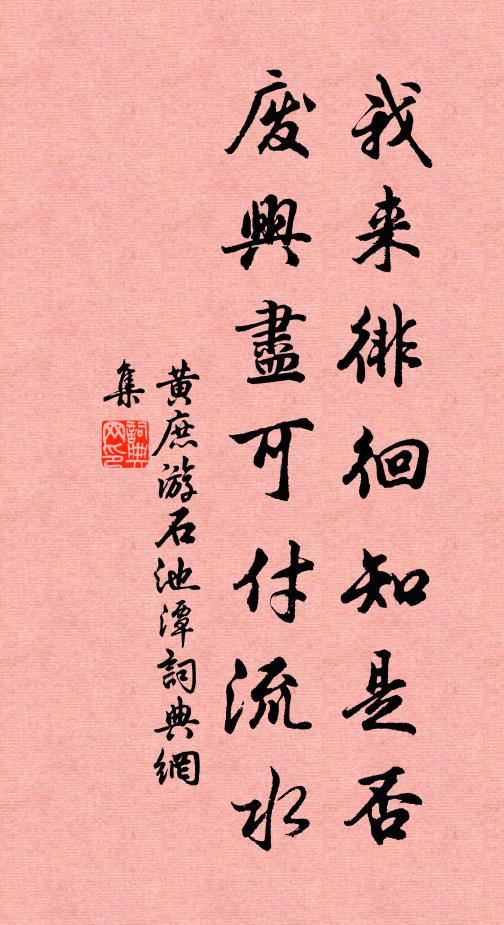 我来徘徊知是否
廢興盡可付流水
黄庶游石池潭詞典網
集
詞典
网印